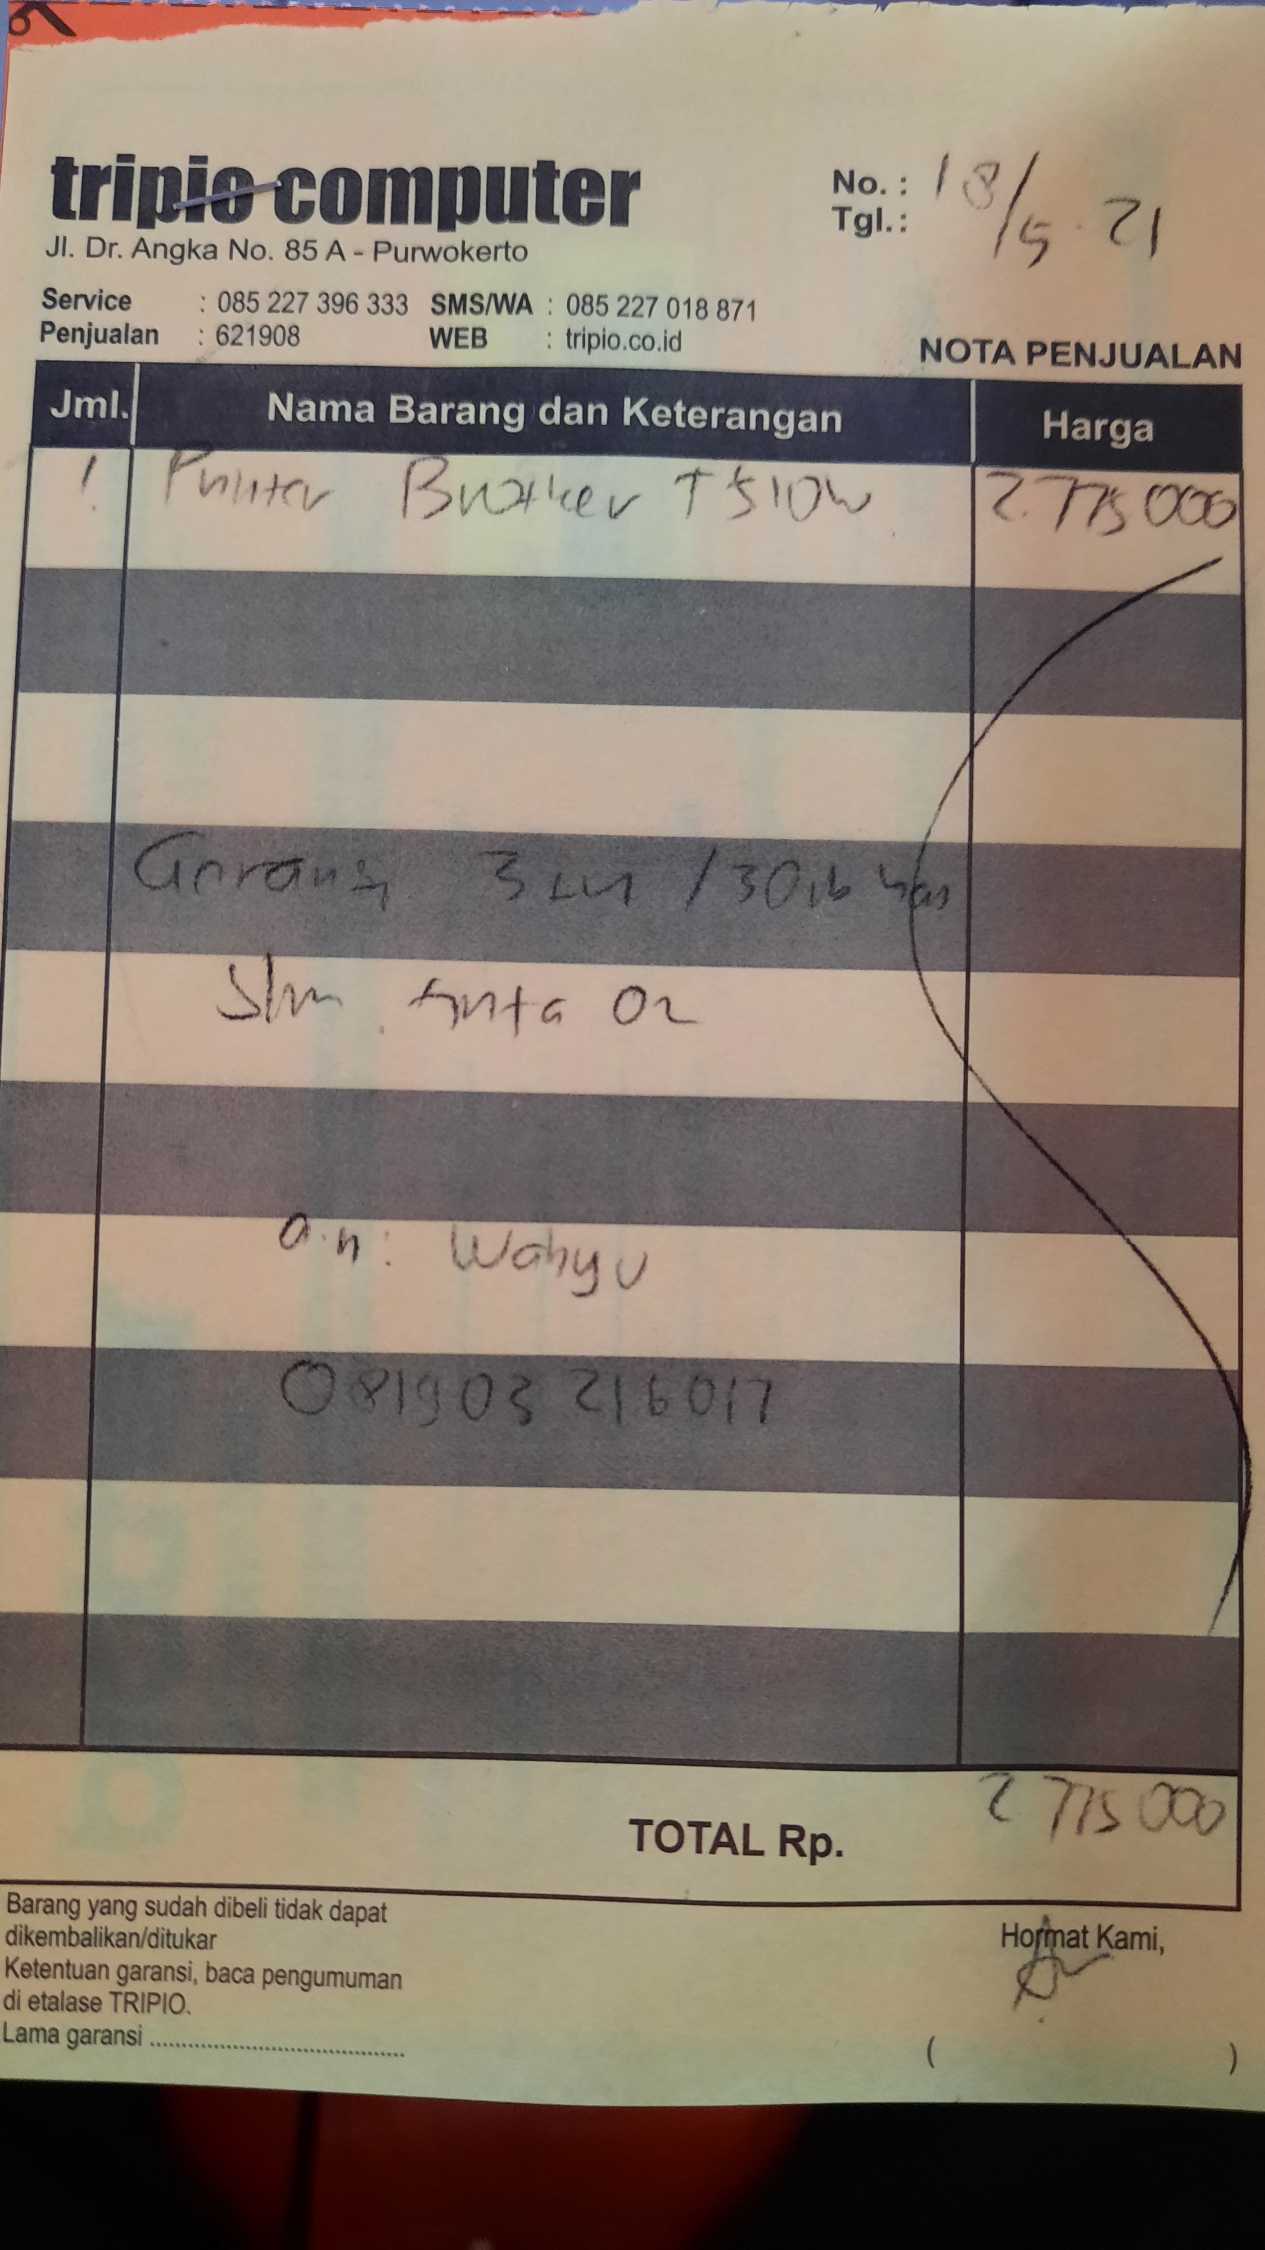 tripio computer
No. : 18/5.21
Tgl. :
Jl. Dr. Angka No. 85 A - Purwokerto
Service : 085 227 396 333 SMS/WA : 085 227 018 871
Penjualan : 621908 WEB : tripio.co.id
NOTA PENJUALAN
Jml. Nama Barang dan Keterangan Harga
1 Printer Brother T510w 2.775000
Garansi 3 thn /30rb
tinta
a.n: Wahyu
081903216017
TOTAL Rp. 2 775 000
Barang yang sudah dibeli tidak dapat
dikembalikan/ditukar
Ketentuan garansi, baca pengumuman
di etalase TRIPIO.
Lama garansi ......................................
Hormat Kami,
( )